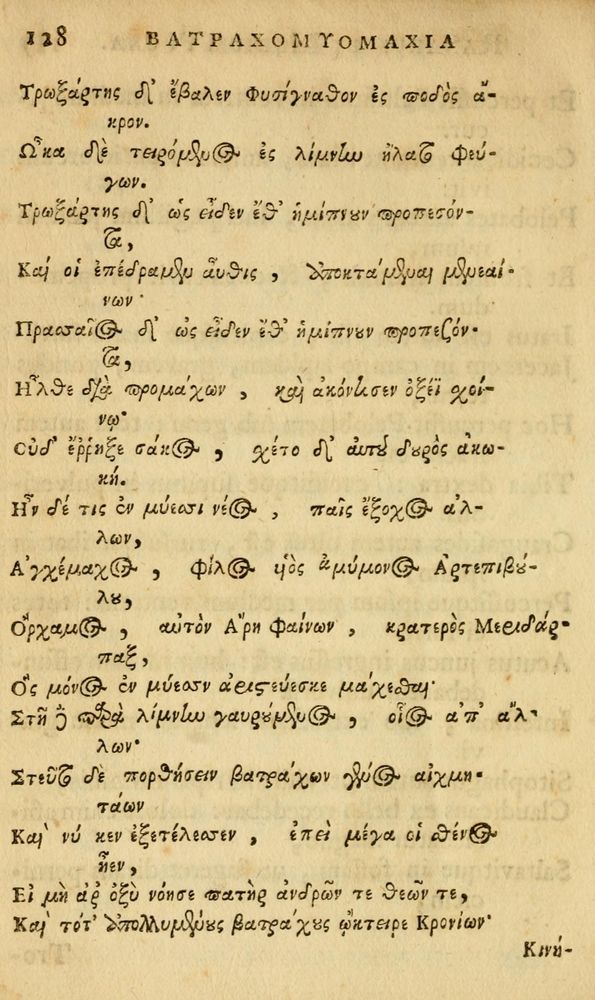 128 ΒΑΤΡΑΧΟΜΥΟΜΑΧΙΑ
Τρωξάρτης δ' ἔβαλεν Φυσίγναθον ἐς ποδὸς ἄ-
κρον.
Ὦκα δὲ τειρόμενος ἐς λίμνην ἥλατο φεύ-
γων.
Τρωξάρτης δ' ὡς εἶδεν ἔθ' ἡμίπνουν προπεσόν-
τα,
Καί οἱ ἐπέδραμεν αὖθις, ἀποκτάμεναι μενεαί-
νων·
Πρασσαῖος δ' ὡς εἶδεν ἔθ' ἡμίπνουν προπεζόν-
τα,
Ἦλθε διὰ προμάχων, καὶ ἀκόντισεν ὀξέϊ σχοί-
νῳ·
Οὐδ' ἔῤῥηξε σάκος, σχέτο δ' αὐτοῦ δουρὸς ἀκω-
κή.
Ἦν δέ τις ἐν μύεσσι νέος, παῖς ἔξοχος ἀλ-
λων,
Ἀγχέμαχος, φίλος υἱὸς ἀμύμονος Ἀρτεπιβού-
λου,
Ὄρχαμος, αὐτὸν Ἄρη φαίνων, κρατερὸς Μεριδάρ-
παξ,
Ὃς μόνος ἐν μύεσσιν ἀριστεύεσκε μάχεσθαι·
Στῆ δὲ παρὰ λίμνην γαυρούμενος, οἶος ἀπ' ἄλ-
λων·
Στεῦτο δὲ πορθήσειν βατράχων γένος αἰχμη-
τάων
Καὶ νύ κεν ἐξετέλεσσεν, ἐπεὶ μέγα οἱ σθένος
ἦεν,
Εἰ μὴ ἄρ ὀξὺ νόησε πατὴρ ἀνδρῶν τε θεῶν τε,
Καὶ τότ' ἀπολλυμένους βατράχους ᾤκτειρε Κρονίων·
Κινή-